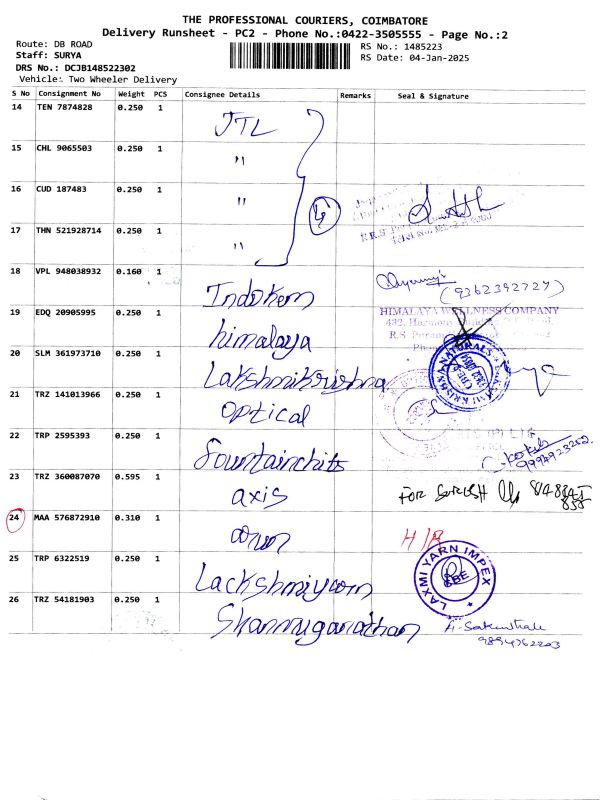 THE PROFESSIONAL COURIERS, COIMBATORE
Delivery Runsheet - PC2 - Phone No.:0422-3505555 - Page No.:2
Route: DB ROAD
RS No.: 1485223
Staff: SURYA
RS Date: 04-Jan-2025
DRS No.: DCJB148522302
Vehicle: Two Wheeler Delivery
S No Consignment No Weight PCS Consignee Details Remarks Seal & Signature
14 TEN 7874828 0.250 1 JTL
15 CHL 9065503 0.250 1 "
16 CUD 187483 0.250 1 "
17 THN 521928714 0.250 1 "
18 VPL 948038932 0.160 1 Indokem (9362392727)
19 EDQ 20905995 0.250 1 himalaya
HIMALAYA WELLNESS COMPANY
20 SLM 361973710 0.250 1 Lakshmikrishna
21 TRZ 141013966 0.250 1 optical
22 TRP 2595393 0.250 1 fountainchits
23 TRZ 360087070 0.595 1 axis FOR SURESH
24 MAA 576872910 0.310 1 arun
25 TRP 6322519 0.250 1 Lackshmiyarn
LAXMI YARN IMPEX
CBE
26 TRZ 54181903 0.250 1 Shanmuganathan